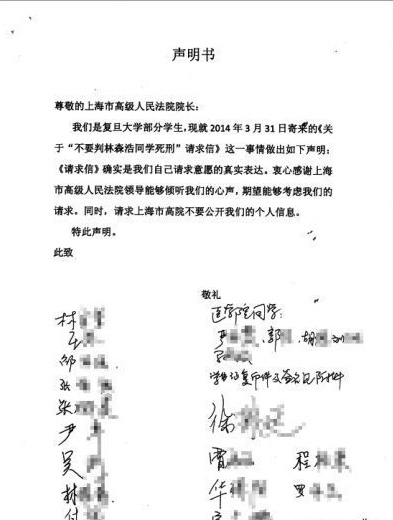 声明书
尊敬的上海市高级人民法院院长：
我们是复旦大学部分学生，现就 2014 年 3 月 31 日寄来的《关
于“不要判林森浩同学死刑”请求信》这一事情做出如下声明：
《请求信》确实是我们自己请求意愿的真实表达。衷心感谢上海
市高级人民法院领导能够倾听我们的心声，期望能够考虑我们的
请求。同时，请求上海市高院不要公开我们的个人信息。
特此声明。
此致
敬礼
医学院同学：
林
郭 胡 刘
邹
张
学生证复印件及签名见附件
张
徐
尹
吴
程
林
华 罗
付